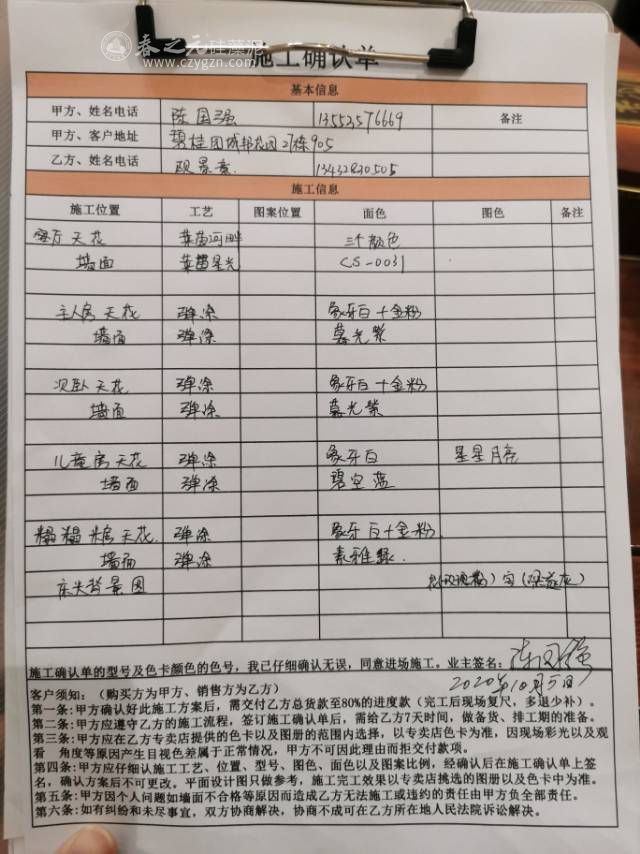 春之元硅藻泥
www.czygzn.com
施工确认单
基本信息
甲方、姓名电话 陈国强 13553576669 备注
甲方、客户地址 碧桂园城邦花园27栋905
乙方、姓名电话 欧景意 13432830505
施工信息
施工位置 工艺 图案位置 面色 图色 备注
客厅天花 莱茵河畔 三个颜色
墙面 莱茵星光 CS-0031
主人房天花 弹涂 象牙白+金粉
墙面 弹涂 暮光紫
次卧天花 弹涂 象牙白+金粉
墙面 弹涂 暮光紫
儿童房天花 弹涂 象牙白 星星月亮
墙面 弹涂 碧空蓝
榻榻米房天花. 弹涂 象牙白+金粉
墙面 弹涂 素雅绿.
床头背景图
施工确认单的型号及色卡颜色的色号，我已仔细确认无误，同意进场施工。业主签名：陈国强
2020年10月5日
客户须知：（购买方为甲方、销售方为乙方）
第一条：甲方确认好此施工方案后，需交付乙方总货款至80%的进度款（完工后现场复尺，多退少补）。
第二条：甲方应遵守乙方的施工流程，签订施工确认单后，需给乙方7天时间，做备货、排工期的准备。
第三条：甲方应在乙方专卖店提供的色卡以及图册的范围内选择，以专卖店色卡为准，因现场彩光以及观
看 角度等原因产生目视色差属于正常情况，甲方不可因此理由而拒交付款项。
第四条：甲方应仔细确认施工工艺、位置、型号、图色、面色以及图案比例，经确认后在施工确认单上签
名，确认方案后不可更改。平面设计图只做参考，施工完工效果以专卖店挑选的图册以及色卡中为准。
第五条：甲方因个人问题如墙面不合格等原因而造成乙方无法施工或违约的责任由甲方负全部责任。
第六条：如有纠纷和未尽事宜，双方协商解决，协商不成可在乙方所在地人民法院诉讼解决。